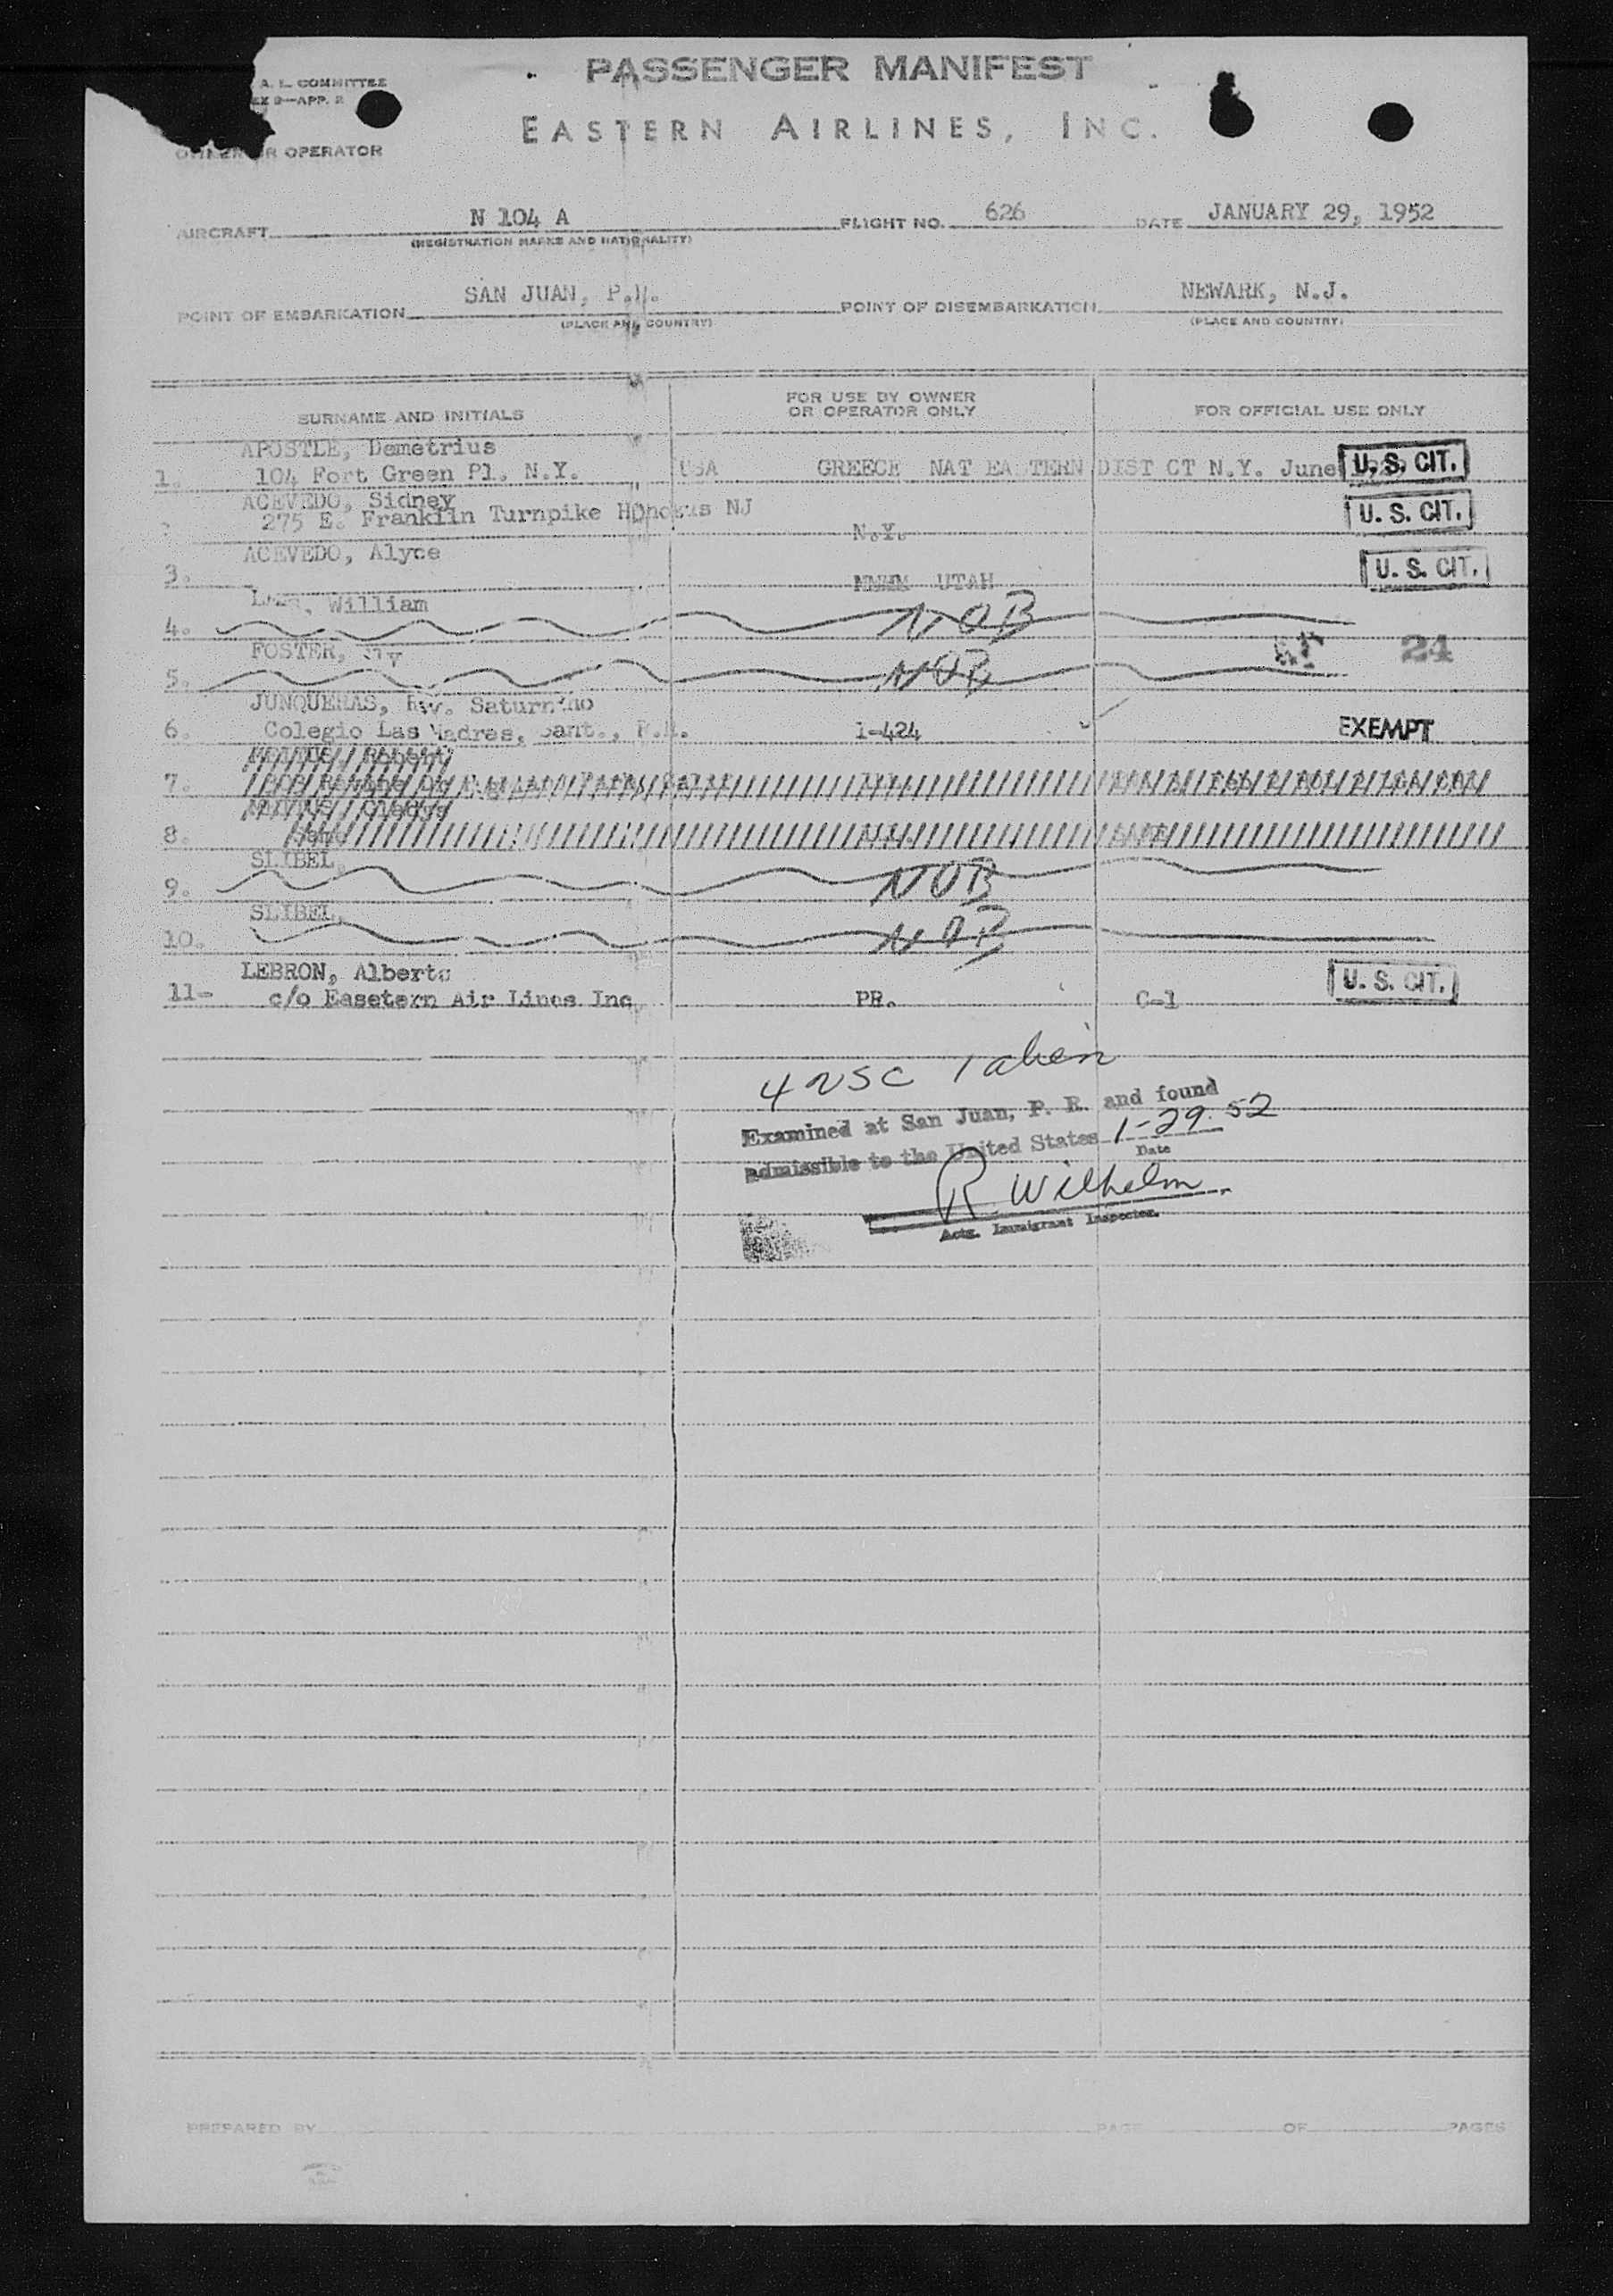 A. L. COMMITTEE
EX 9—APP. 2
PASSENGER MANIFEST
EASTERN AIRLINES, INC.
OR OPERATOR
AIRCRAFT N 104 A FLIGHT NO. 626 DATE JANUARY 29, 1952
(REGISTRATION MARKS AND NATIONALITY)
POINT OF EMBARKATION SAN JUAN, P.R. POINT OF DISEMBARKATION NEWARK, N.J.
(PLACE AND COUNTRY) (PLACE AND COUNTRY)
SURNAME AND INITIALS FOR USE BY OWNER OR OPERATOR ONLY FOR OFFICIAL USE ONLY
APOSTLE, Demetrius
1. 104 Fort Green Pl. N.Y. USA GREECE NAT EASTERN DIST CT N.Y. June U. S. CIT.
ACEVEDO, Sidney
275 E. Franklin Turnpike HOhokus NJ N.Y. U. S. CIT.
ACEVEDO, Alyce
3. UTAH U. S. CIT.
William
4. NOB
FOSTER,
5. NOB 24
JUNQUERAS, Rev. Saturnino
6. Colegio Las Madres, Sant., P.R. 1-424 EXEMPT
7.
8.
SLIBEL,
9. NOB
SLIBEL,
10. NOB
LEBRON, Alberto
11- c/o Easetern Air Lines Inc PR. C-1 U. S. CIT.
4 NSC Taken
Examined at San Juan, P. R. and found
admissible to the United States 1-29-52
Date
R Wilhelm
Actg. Immigrant Inspector.
PREPARED BY PAGE OF PAGES